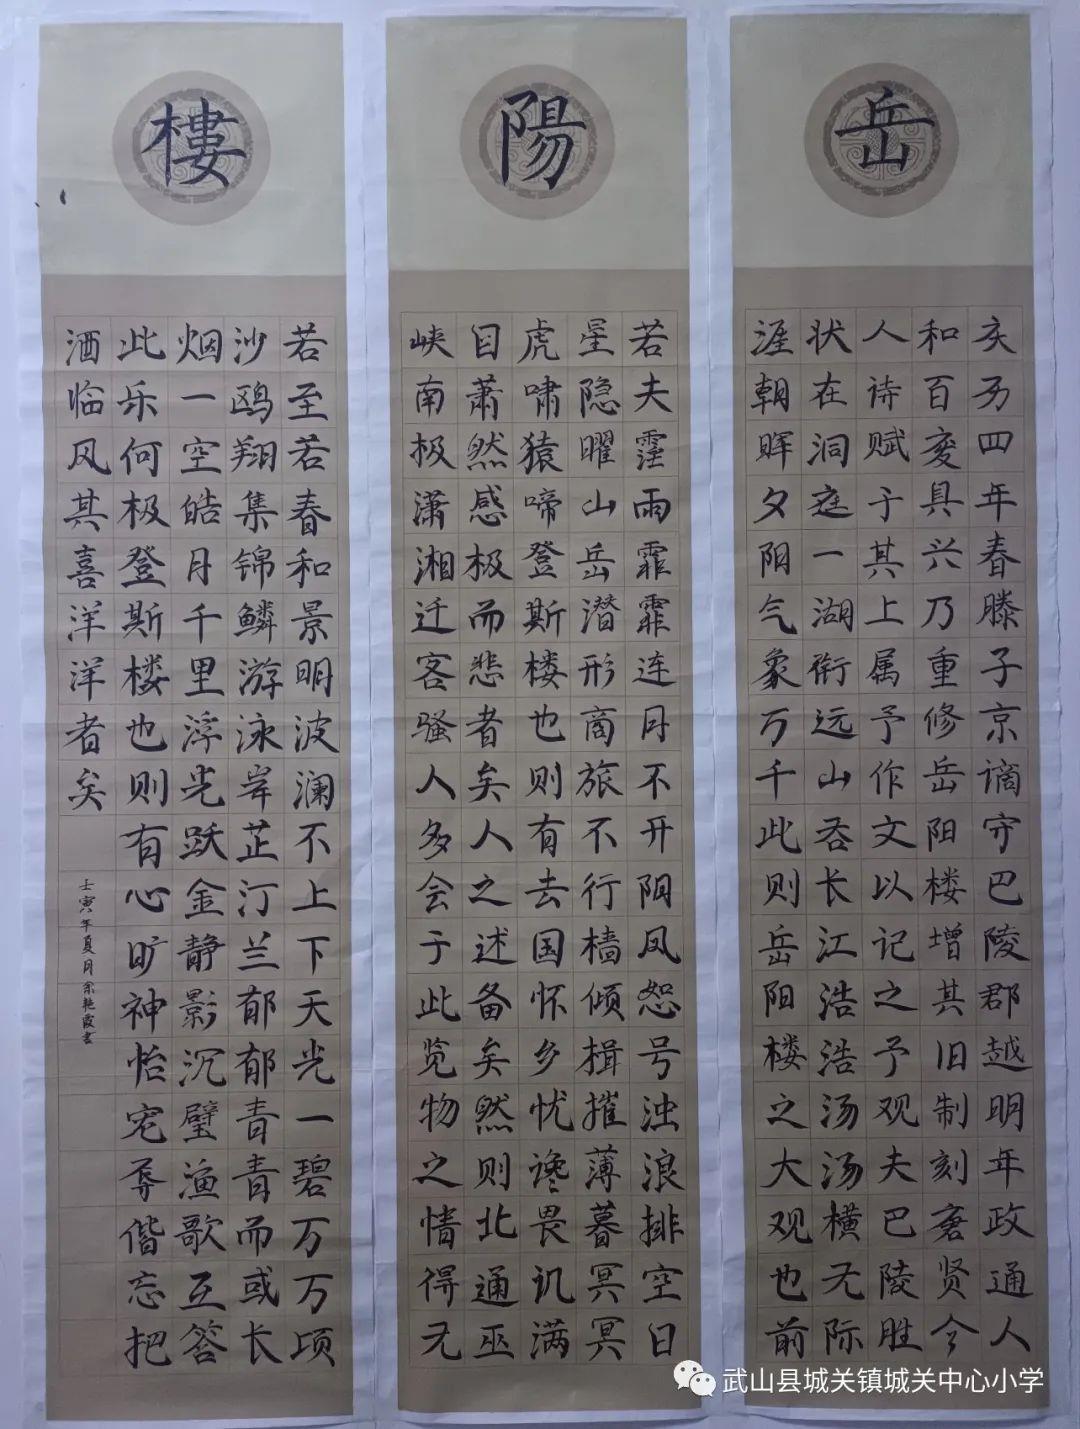 岳
庆历四年春滕子京谪守巴陵郡越明年政通人
和百废具兴乃重修岳阳楼增其旧制刻唐贤今
人诗赋于其上属予作文以记之予观夫巴陵胜
状在洞庭一湖衔远山吞长江浩浩汤汤横无际
涯朝晖夕阳气象万千此则岳阳楼之大观也前
陽
若夫霪雨霏霏连月不开阴风恕号浊浪排空日
星隐曜山岳潜形商旅不行樯倾楫摧薄暮冥冥
虎啸猿啼登斯楼也则有去国怀乡忧谗畏讥满
目萧然感极而悲者矣人之述备矣然则北通巫
峡南极潇湘迁客骚人多会于此览物之情得无
樓
若至若春和景明波澜不上下天光一碧万万顷
沙鸥翔集锦鳞游泳岸芷汀兰郁郁青青而或长
烟一空皓月千里浮光跃金静影沉璧渔歌互答
此乐何极登斯楼也则有心旷神怡宠辱偕忘把
酒临风其喜洋洋者矣
壬寅年夏月余艳霞书
武山县城关镇城关中心小学